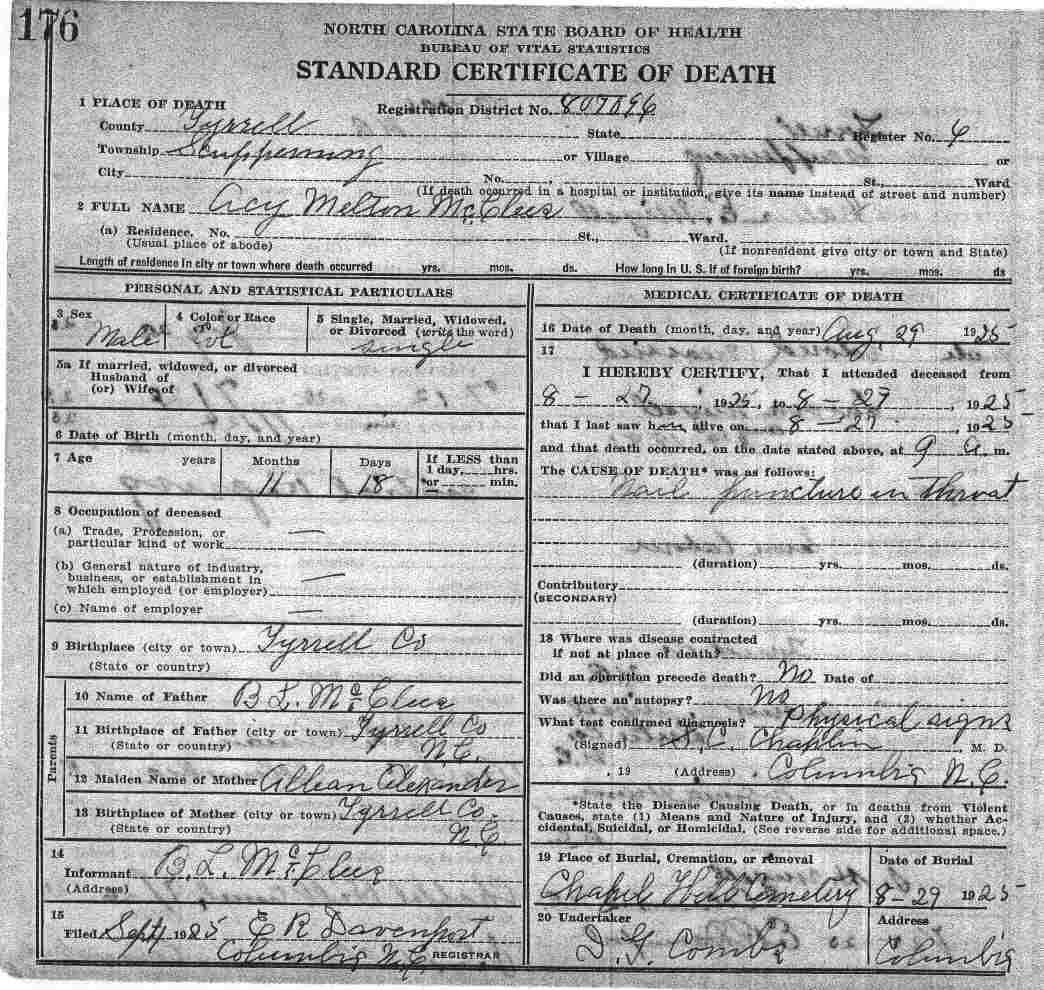 176
NORTH CAROLINA STATE BOARD OF HEALTH
BUREAU OF VITAL STATISTICS
STANDARD CERTIFICATE OF DEATH
1 PLACE OF DEATH
Registration District No. 807896
County Tyrrell State Register No. 6
Township Scuppernong or Village or
City No. St., Ward
(If death occurred in a hospital or institution, give its name instead of street and number)
2 FULL NAME Acy Melton McClees
(a) Residence. No. St., Ward.
(Usual place of abode) (If nonresident give city or town and State)
Length of residence in city or town where death occurred yrs. mos. ds. How long in U. S. if of foreign birth? yrs. mos. ds
PERSONAL AND STATISTICAL PARTICULARS
3 Sex 4 Color or Race 5 Single, Married, Widowed,
or Divorced (write the word)
Male single
5a If married, widowed, or divorced
Husband of
(or) Wife of
6 Date of Birth (month, day, and year)
7 Age years Months Days If LESS than
1 day, hrs.
or min.
11 18
8 Occupation of deceased
(a) Trade, Profession, or
particular kind of work —
(b) General nature of industry,
business, or establishment in
which employed (or employer) —
(c) Name of employer —
9 Birthplace (city or town) Tyrrell Co
(State or country)
Parents
10 Name of Father B L. McClees
11 Birthplace of Father (city or town) Tyrrell Co
(State or country) N.C.
12 Maiden Name of Mother Allean Alexander
13 Birthplace of Mother (city or town) Tyrrell Co.
(State or country) N.C.
14
Informant B. L. McClees
(Address)
15
Filed Sept 1925 E R Davenport
Columbia N.C. REGISTRAR
MEDICAL CERTIFICATE OF DEATH
16 Date of Death (month, day, and year) Aug. 29 1925
17
I HEREBY CERTIFY, That I attended deceased from
8 - 27 1925, to 8 - 27, 1925
that I last saw him alive on 8 - 27, 1925
and that death occurred, on the date stated above, at 9 a. m.
The CAUSE OF DEATH* was as follows:
Nail puncture in throat
(duration) yrs. mos. ds.
Contributory
(SECONDARY)
(duration) yrs. mos. ds.
18 Where was disease contracted
if not at place of death?
Did an operation precede death? No Date of
Was there an autopsy? No
What test confirmed diagnosis? Physical signs
(Signed) S. C. Chaplin M. D.
, 19 (Address) Columbia N.C.
*State the Disease Causing Death, or in deaths from Violent
Causes, state (1) Means and Nature of Injury, and (2) whether Ac-
cidental, Suicidal, or Homicidal. (See reverse side for additional space.)
19 Place of Burial, Cremation, or removal Date of Burial
Chapel Hill Cemetery 8-29 1925
20 Undertaker Address
Combs Columbia